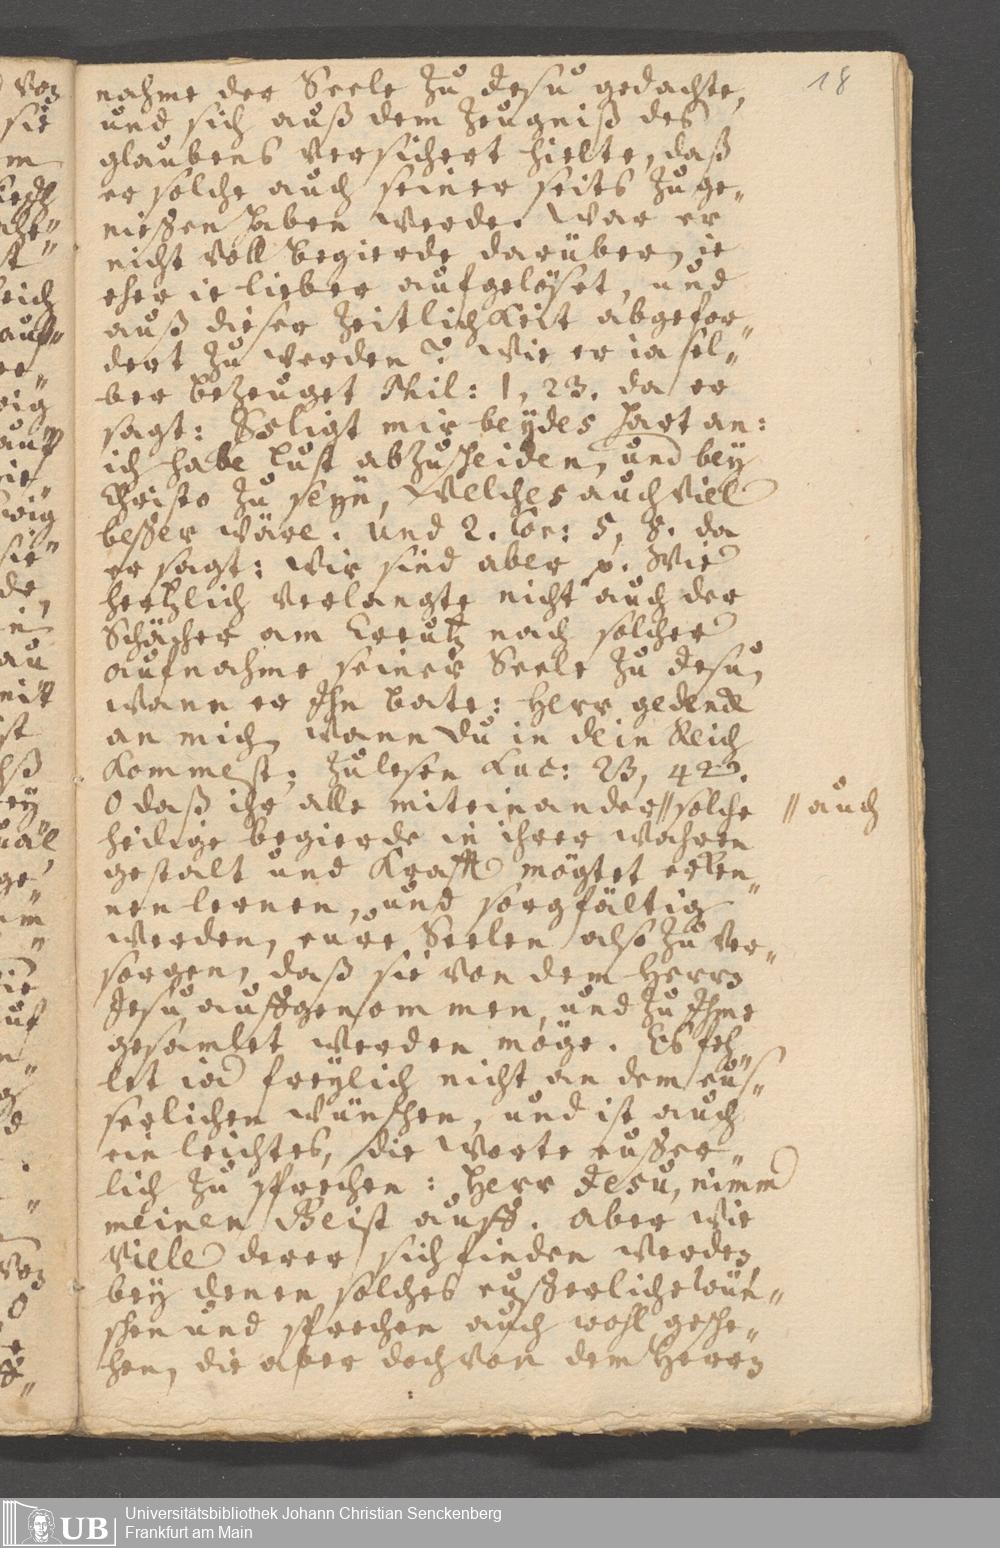 18
nahme der Seele zu Jesu gedachte,
und sich auß dem Zeugniß des
glaubens versichert hielte, daß
er solche auch seiner seits zu ge„
nießen haben werde. War er
nicht voll begierde darüber, ie
eher ie lieber aufgelöset, und
auß dieser Zeitlichkeit abgefor„
dert zu werden? Wie er ia sel„
ber bezeuget Phil: 1, 23. da er
sagt: Es ligt mir beydes hart an:
ich habe lust abzuscheiden, und bey
Christo zu seyn, welches auch viel
beßer wäre. Und 2. Cor: 5, 8. da
er sagt: Wir sind aber p. Wie
hertzlich verlangte nicht auch der
Schächer am Creutz nach solcher
aufnahme seiner Seele zu Jesu,
wann er Ihn bate: Herr gedenck
an mich, wann du in dein Reich
kommest; zulesen Luc: 23, 42.
O daß ihr alle miteinander // solche // auch
heilige begierde in ihrer wahren
gestalt und Krafft mögtet erken„
nen lernen, und sorgfältig
werden, eure Seelen also zu ver„
sorgen, daß sie von dem Herrn
Jesu auffgenommen, und zu Ihme
gesamlet werden möge. Es feh„
let ia freylich nicht an dem eus„
serlichen wünschen, und ist auch
ein leichtes, die Worte eußer„
lich zu sprechen: Herr Jesu, nimm
meinen Geist auff. Aber wie
viele derer sich finden werden
bey denen solches eußerliche wün„
schen und sprechen auch wohl gesche„
hen, die aber doch von dem Herrn
UB
Universitätsbibliothek Johann Christian Senckenberg
Frankfurt am Main